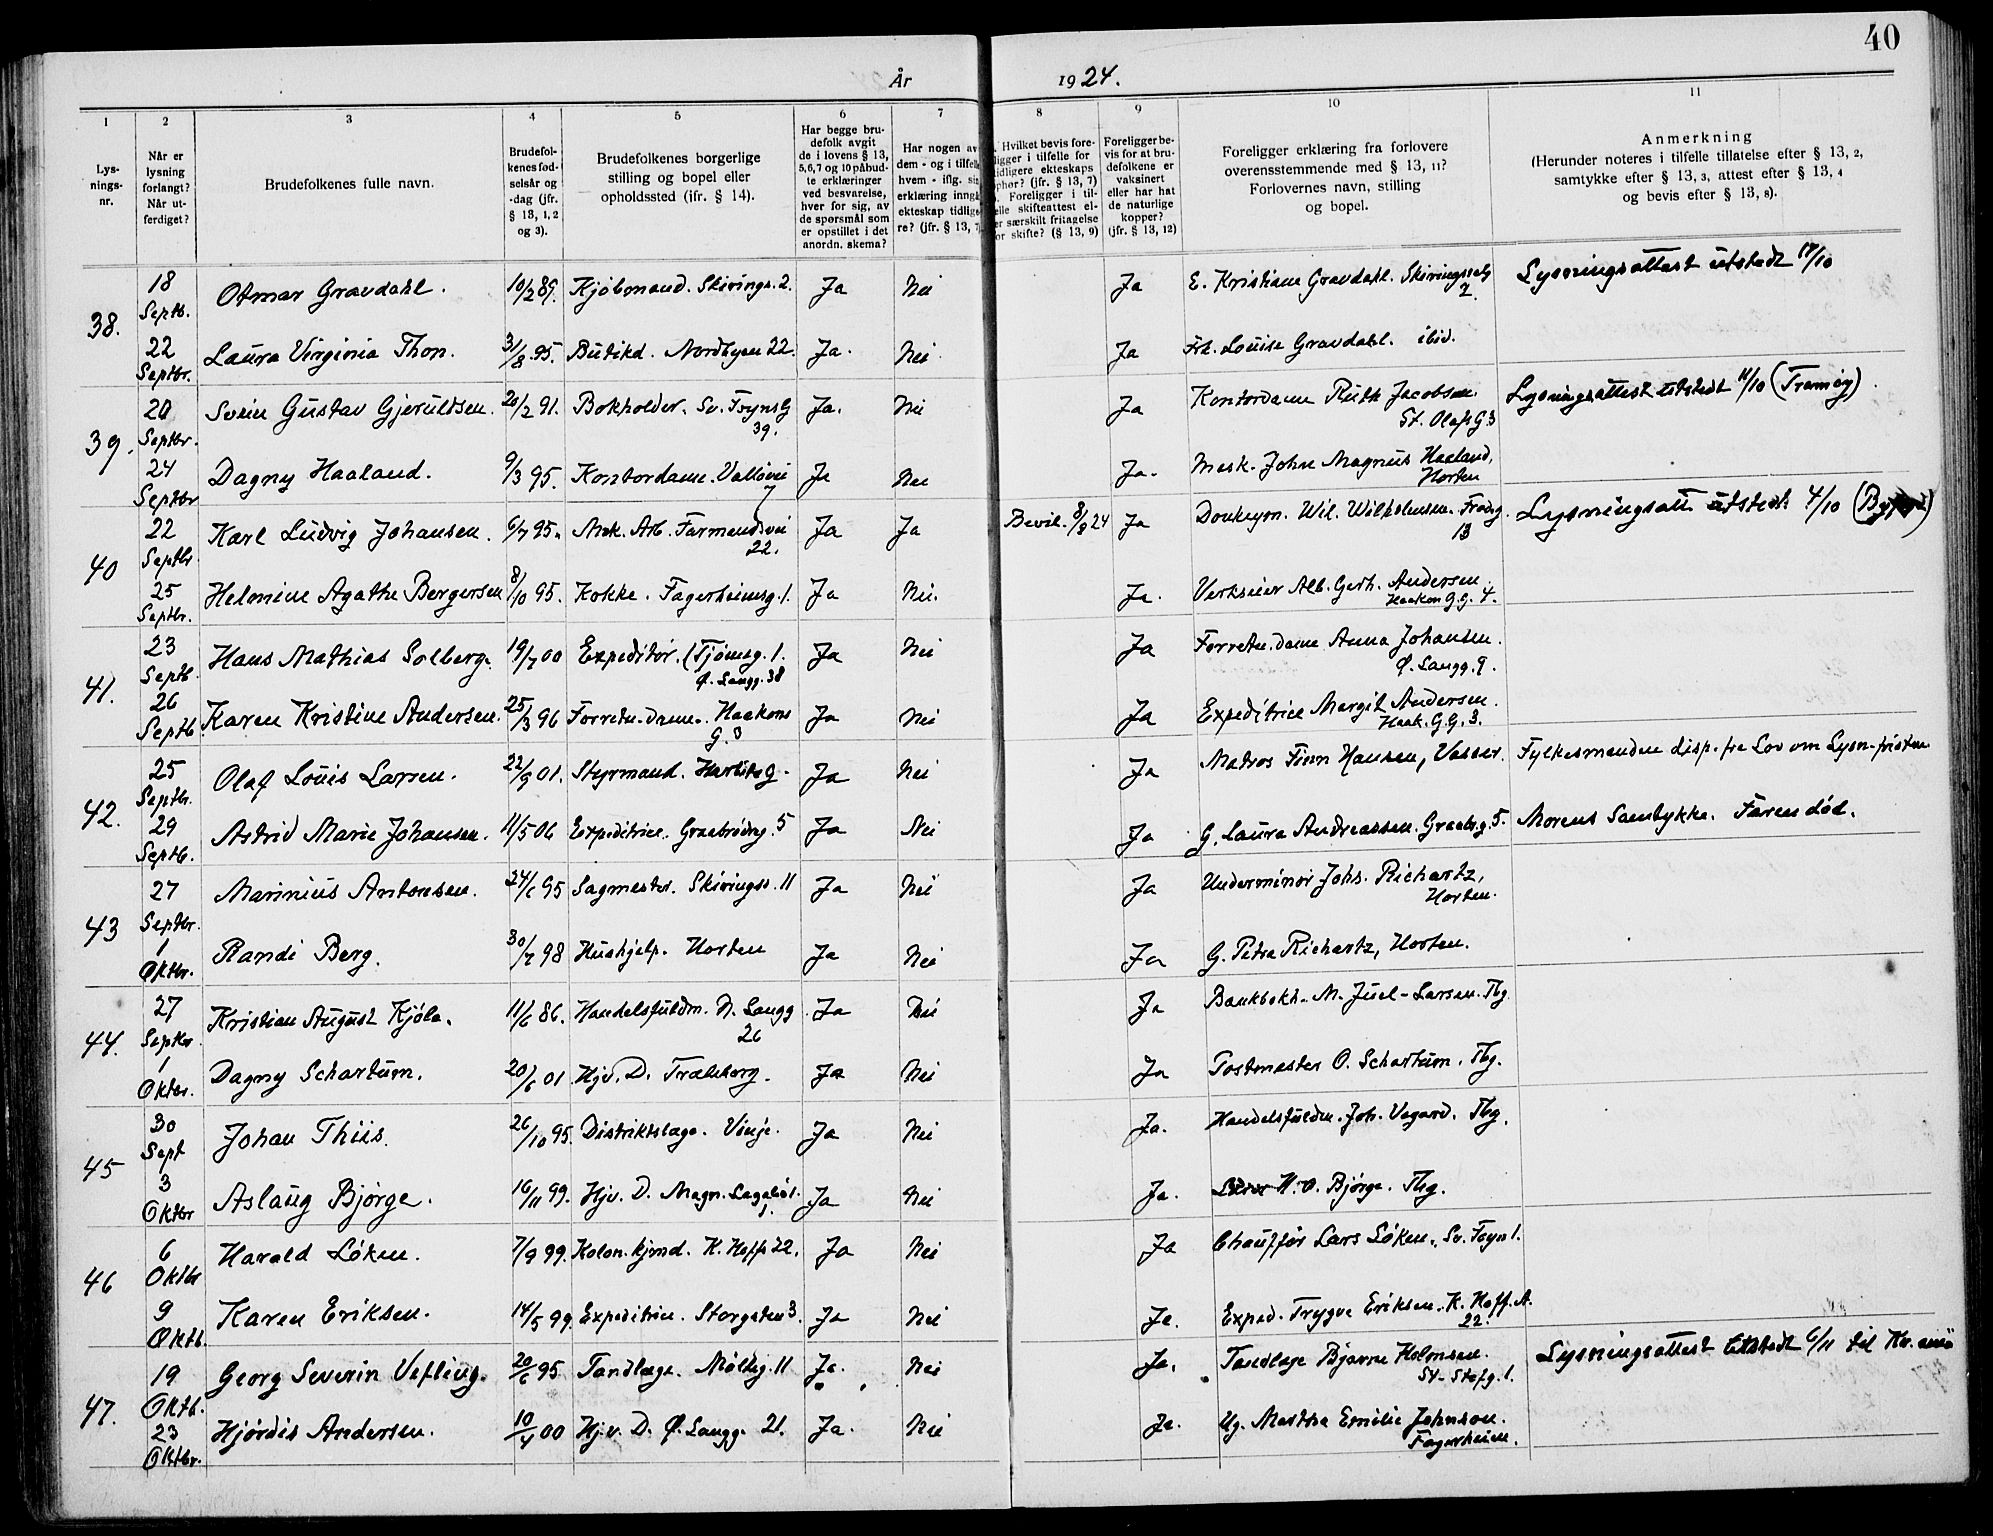 40
År 1924.
1 2 3 4 5 6 7 8 9 10 11
Lysningsnr.
Når er lysning forlangt? Når utferdiget?
Brudefolkenes fulle navn.
Brudefolkenes fødselsår og -dag (jfr. § 13, 1, 2 og 3).
Brudefolkenes borgerlige stilling og bopel eller opholdssted (jfr. § 14).
Har begge brudefolk avgit de i lovens § 13, 5,6,7 og 10 påbudte erklæringer ved besvarelse, hver for sig, av de spørsmål som er opstillet i det anordn. skema?
Har nogen av dem - og i tilfelle hvem - iflg. sin erklæring inngå ekteskap tidligere? (jfr. § 13, 7
Hvilket bevis foreligger i tilfelle for tidligere ekteskaps ophør? (jfr. § 13, 7) Foreligger i tilfelle skifteattest eller særskilt fritagelse for skifte? (§ 13, 9)
Foreligger bevis for at brudefolkene er vaksinert eller har hat de naturlige kopper? (jfr. § 13, 12)
Foreligger erklæring fra forlovere overensstemmende med § 13, 11? Forlovernes navn, stilling og bopel.
Anmerkning (Herunder noteres i tilfelle tillatelse efter § 13, 2, samtykke efter § 13, 3, attest efter § 13, 4 og bevis efter § 13, 8).
38. 18 Septb. Otmar Gravdahl. 10/2 89. Kjøbmand. Skiringss. 2. Ja Nei Ja E. Kristiane Gravdahl. Skiringssalg 2. Lysningsattest utstedt 17/10
22 Septbr. Laura Virginia Thon. 31/8 95. Butikd. Nordbyen 22. Ja. Nei Ja Frk. Louise Gravdahl. ibid.
39. 20 Septbr. Svein Gustav Gjeruldsen. 20/2 91. Bokholder. Sv. Foyns G 39. Ja. Nei Ja Kontordame Ruth Jacobsen. St. Olafs G 3 Lysningsattest utstedt 11/10 (Tromøy)
24 Septbr Dagny Haaland. 9/3 95. Kontordame. Valløvei 7 Ja Nei Ja. Mask. John Magnus Haaland, Horten
40 22 Septbr Karl Ludvig Johansen. 6/7 95. Mek. Arb. Farmandsvei 22. Ja Ja Bevil. 8/8 24 Ja Donkeym. Wil. Wilhelmsen. Frodeg. 13 Lysningsatt utstedt 4/10
25 Septbr. Helmine Agathe Bergersen 8/10 95. Kokke. Fagerheimsg. 1. Ja Nei. Ja. Verkseier Alb. Gerh. Andersen. Haakon G.G. 4.
41. 23 Septb. Hans Mathias Solberg. 19/7 00 Expeditør. (Tjømeg. 1. Ø. Langg. 38 Ja Nei Ja Forretn. dame Anna Johansen. Ø. Langg. 9.
26 Septb. Karen Kristine Andersen. 25/3 96 Forretn. dame. Haakons G. 3 Ja Nei Ja Expeditrice Margit Andersen. Haak. G.G. 3.
42. 25 Septbr. Olaf Louis Larsen. 22/9 01. Styrmand. Ja Nei Ja Matros Finn Hansen, Vasser. Fylkesmanden disp. fra Lov om Lysn-fristen
29 Septb. Astrid Marie Johansen. 11/5 06 Expeditrice. Graabrødreg. 5 Ja Nei Ja G. Laura Andreassen. Graabr.g. 5. Morens Samtykke. Faren død.
43 27 Septbr. Marinius Antonsen. 24/6 95 Sagmester. Skiringss. 11 Ja Nei Ja Underminør Johs. Richartz, Horten.
1 Oktbr. Randi Berg. 30/7 98 Hushjelp. Horten Ja Nei Ja G. Petra Richartz, Horten.
44. 27 Septbr Kristian August Kjøle. 11/6 86. Handelsfuldm. N. Langg 26 Ja Nei Ja Bankbokh. M. Juel-Larsen. Tbg
1 Oktbr. Dagny Schartum. 20/6 01 Hjv. D. Træleborg. Ja Nei Ja Postmester O. Schartum. Tbg.
45 30 Sept Johan Thiis. 26/10 95. Distriktslæge. Vinje. Ja Nei Ja. Handelsfuldm. Joh. Vegard. Tbg.
3 Oktbr Aslaug Bjørge. 16/11 99. Hjv. D. Magn. Lagabøt. 1. Ja Nei Ja. H. O. Bjørge. Tbg.
46 6 Oktbr Harald Løken. 7/9 99. Kolon. kjmd. K. Hoffs 22. Ja Nei Ja Chauffør Lars Løken. Sv. Foyn 1.
9 Oktb. Karen Eriksen. 14/5 99. Expeditrice. Storgaten 3. Ja Nei Ja. Exped. Trygve Eriksen. K. Hoff. A. 22.
47. 19 Oktb. Georg Severin Vefling. 20/6 95 Tandlæge. Mølleg. 11 Ja. Nei Ja. Tandlæge Bjarne Holmsen. St-Stefg. 1. Lysningsattest utstedt 6/11 til Kr.ania
23 Oktbr. Hjørdis Andersen. 10/4 00 Hjv. D. Ø. Langg. 21. Ja. Nei Ja. Ug. Martha Emilie Johnson. Fagerheim.